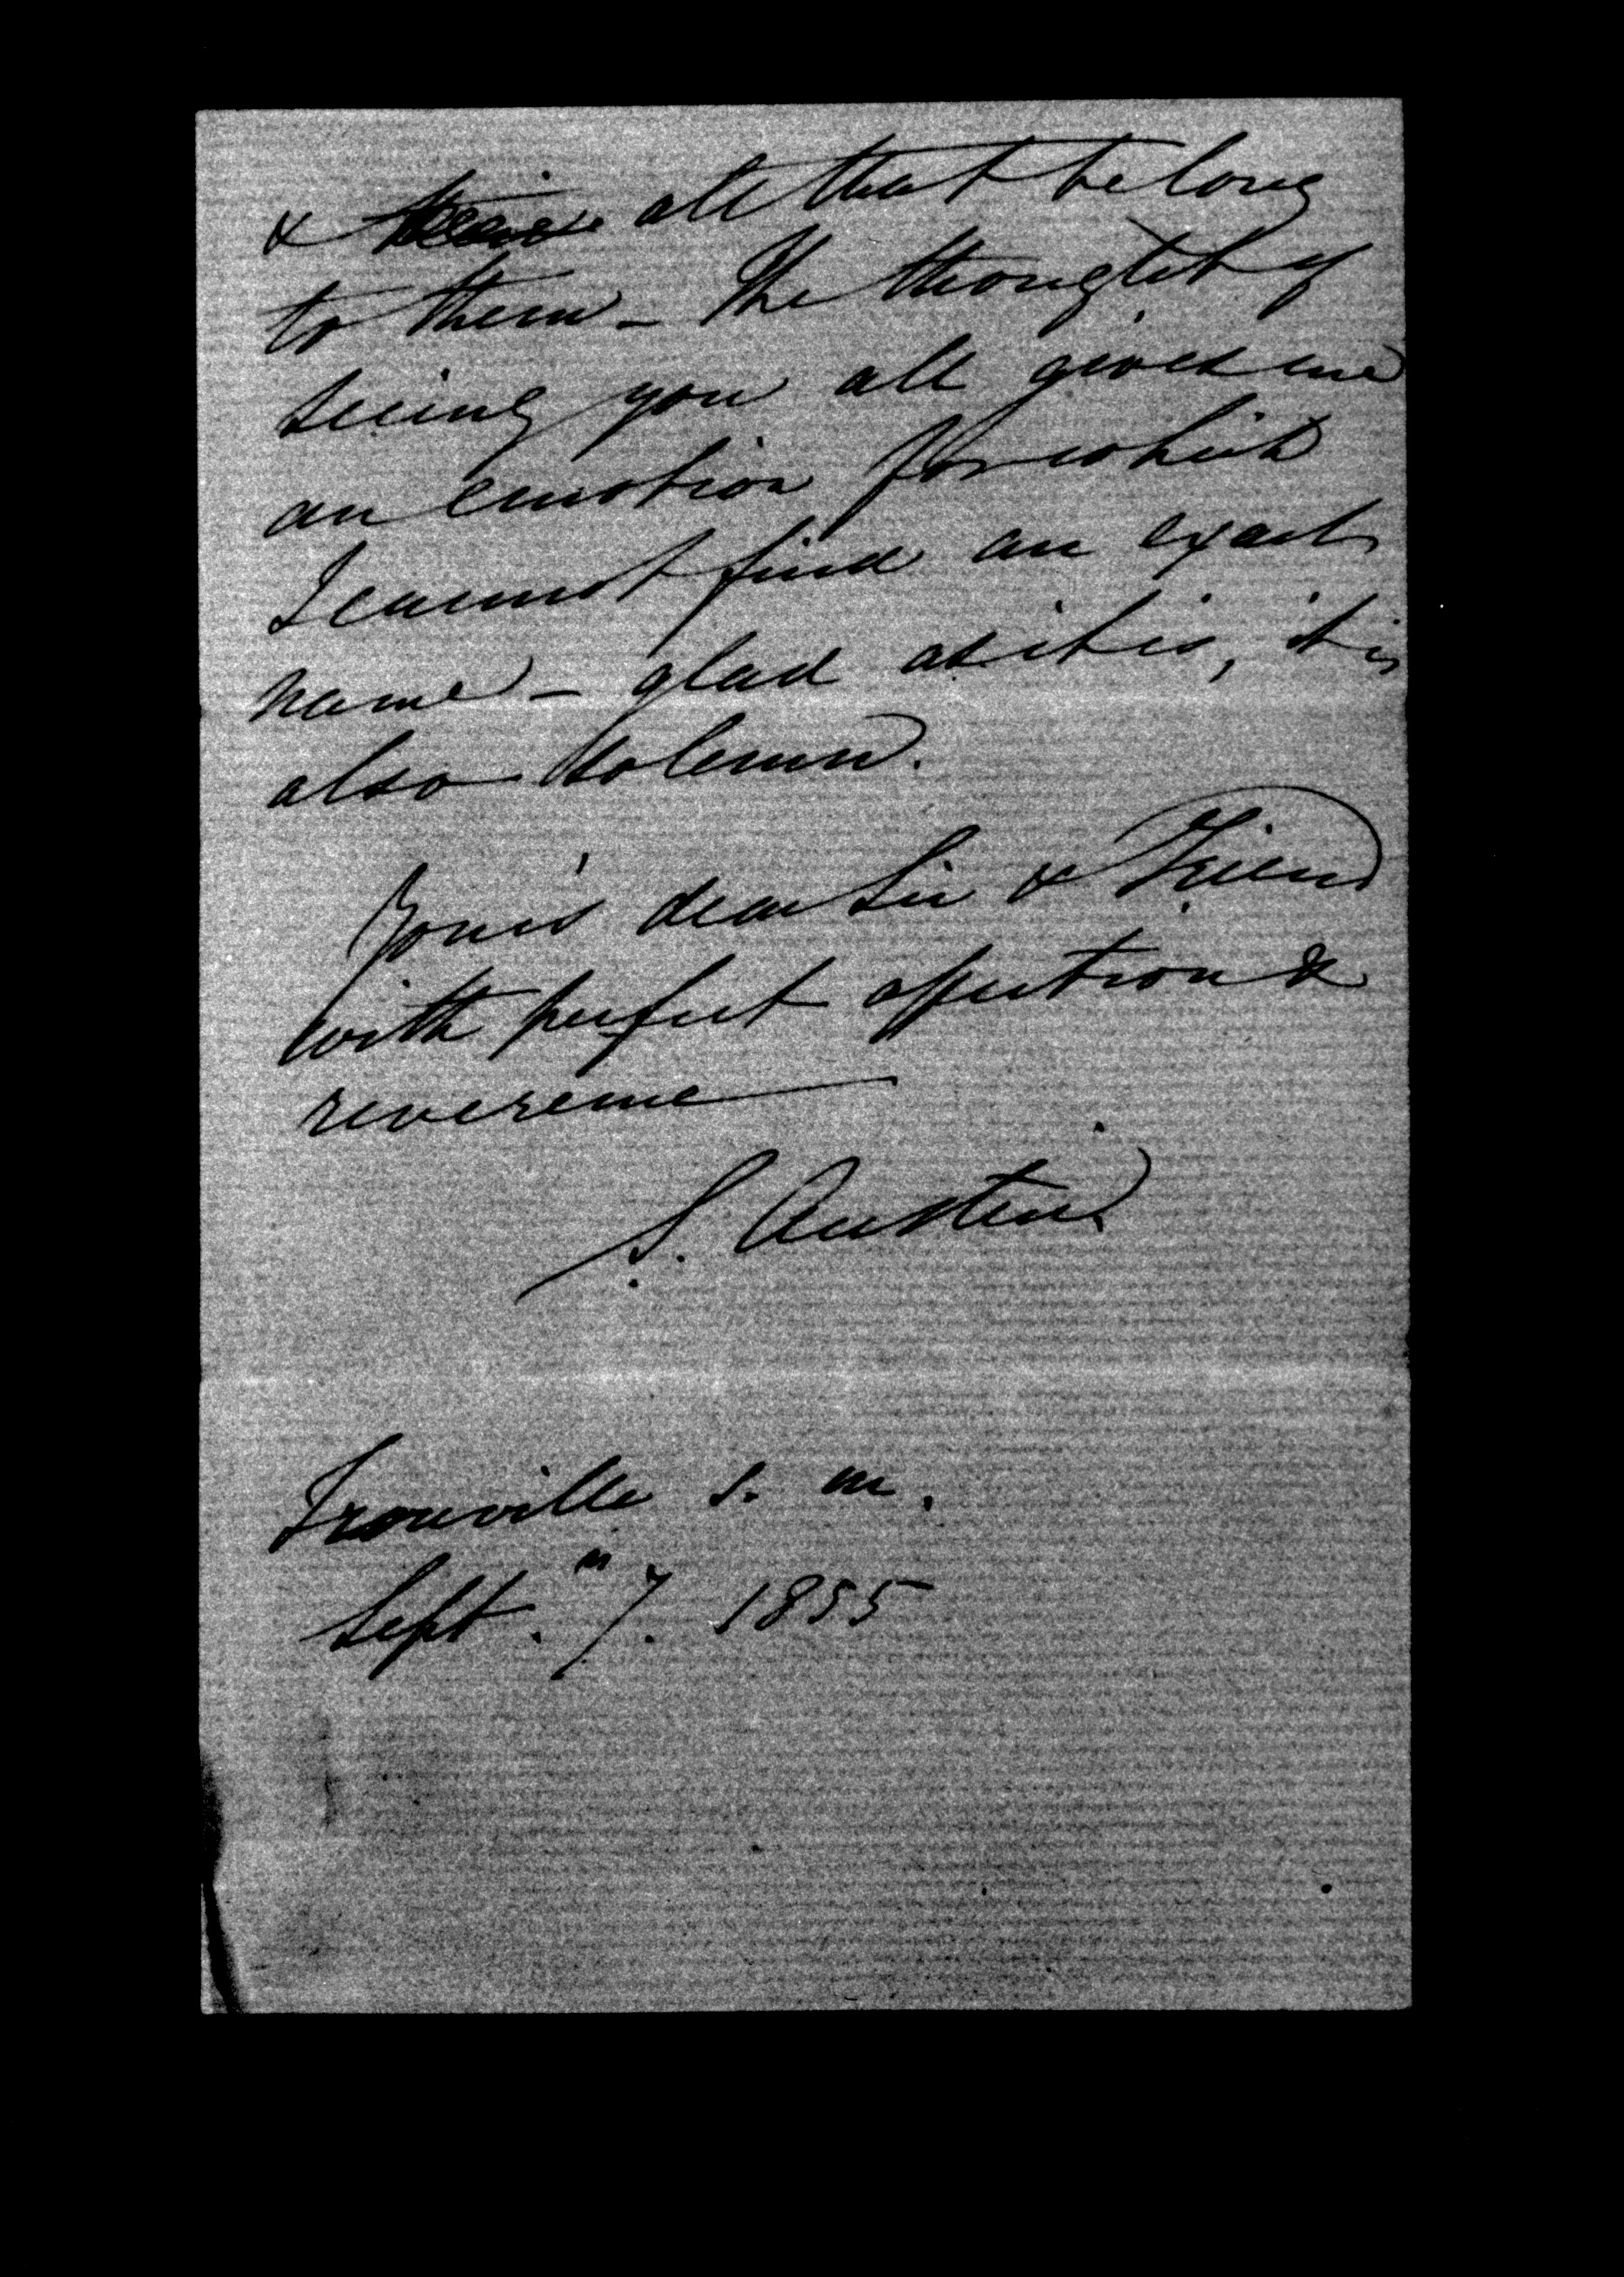 & all that belong
to them – The thought of
seeing you all gives me
an emotion for which
I cannot find an exact
name – glad as it is, it is
also solemn.
Your's dear Sir & Friend
with perfect affection &
reverence
S. Austin
Trouville s. m.
Sept. 7. 1855